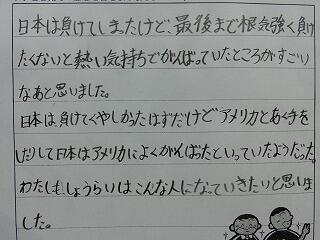 日本は負けてしまったけど、最後まで根気強く負け
たくないと熱い気持ちでがんばっていたところがすごい
なあと思いました。
日本は負けてくやしかったはずだけどアメリカとあく手を
しだりして日本はアメリカによくがんばったといっていたようだった。
わたしもしょうらいはこんな人になっていきたいと思いま
した。